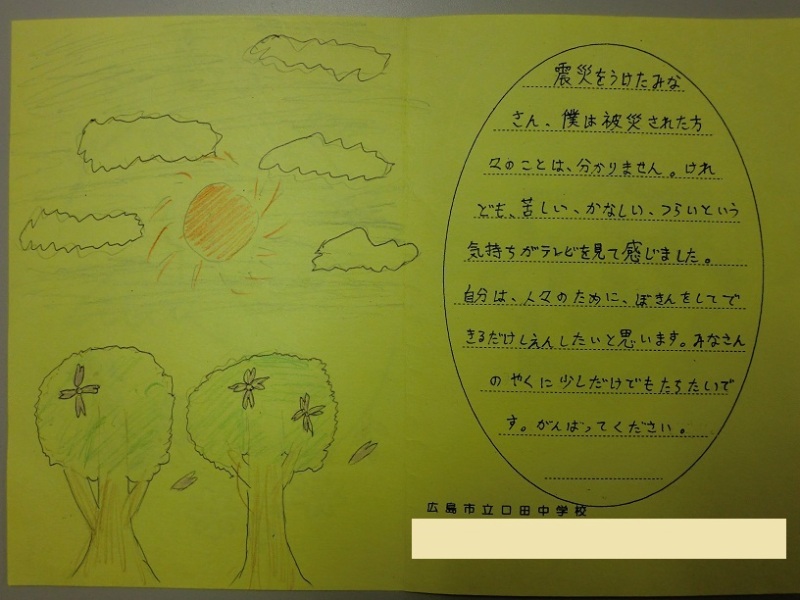 震災をうけたみな
さん、僕は被災された方
々のことは、分かりません。けれ
ども、苦しい、かなしい、つらいという
気持ちがテレビを見て感じました。
自分は、人々のために、ぼきんをしてで
きるだけしえんしたいと思います。みなさん
のやくに少しだけでもたちたいで
す。がんばってください。
広島市立口田中学校